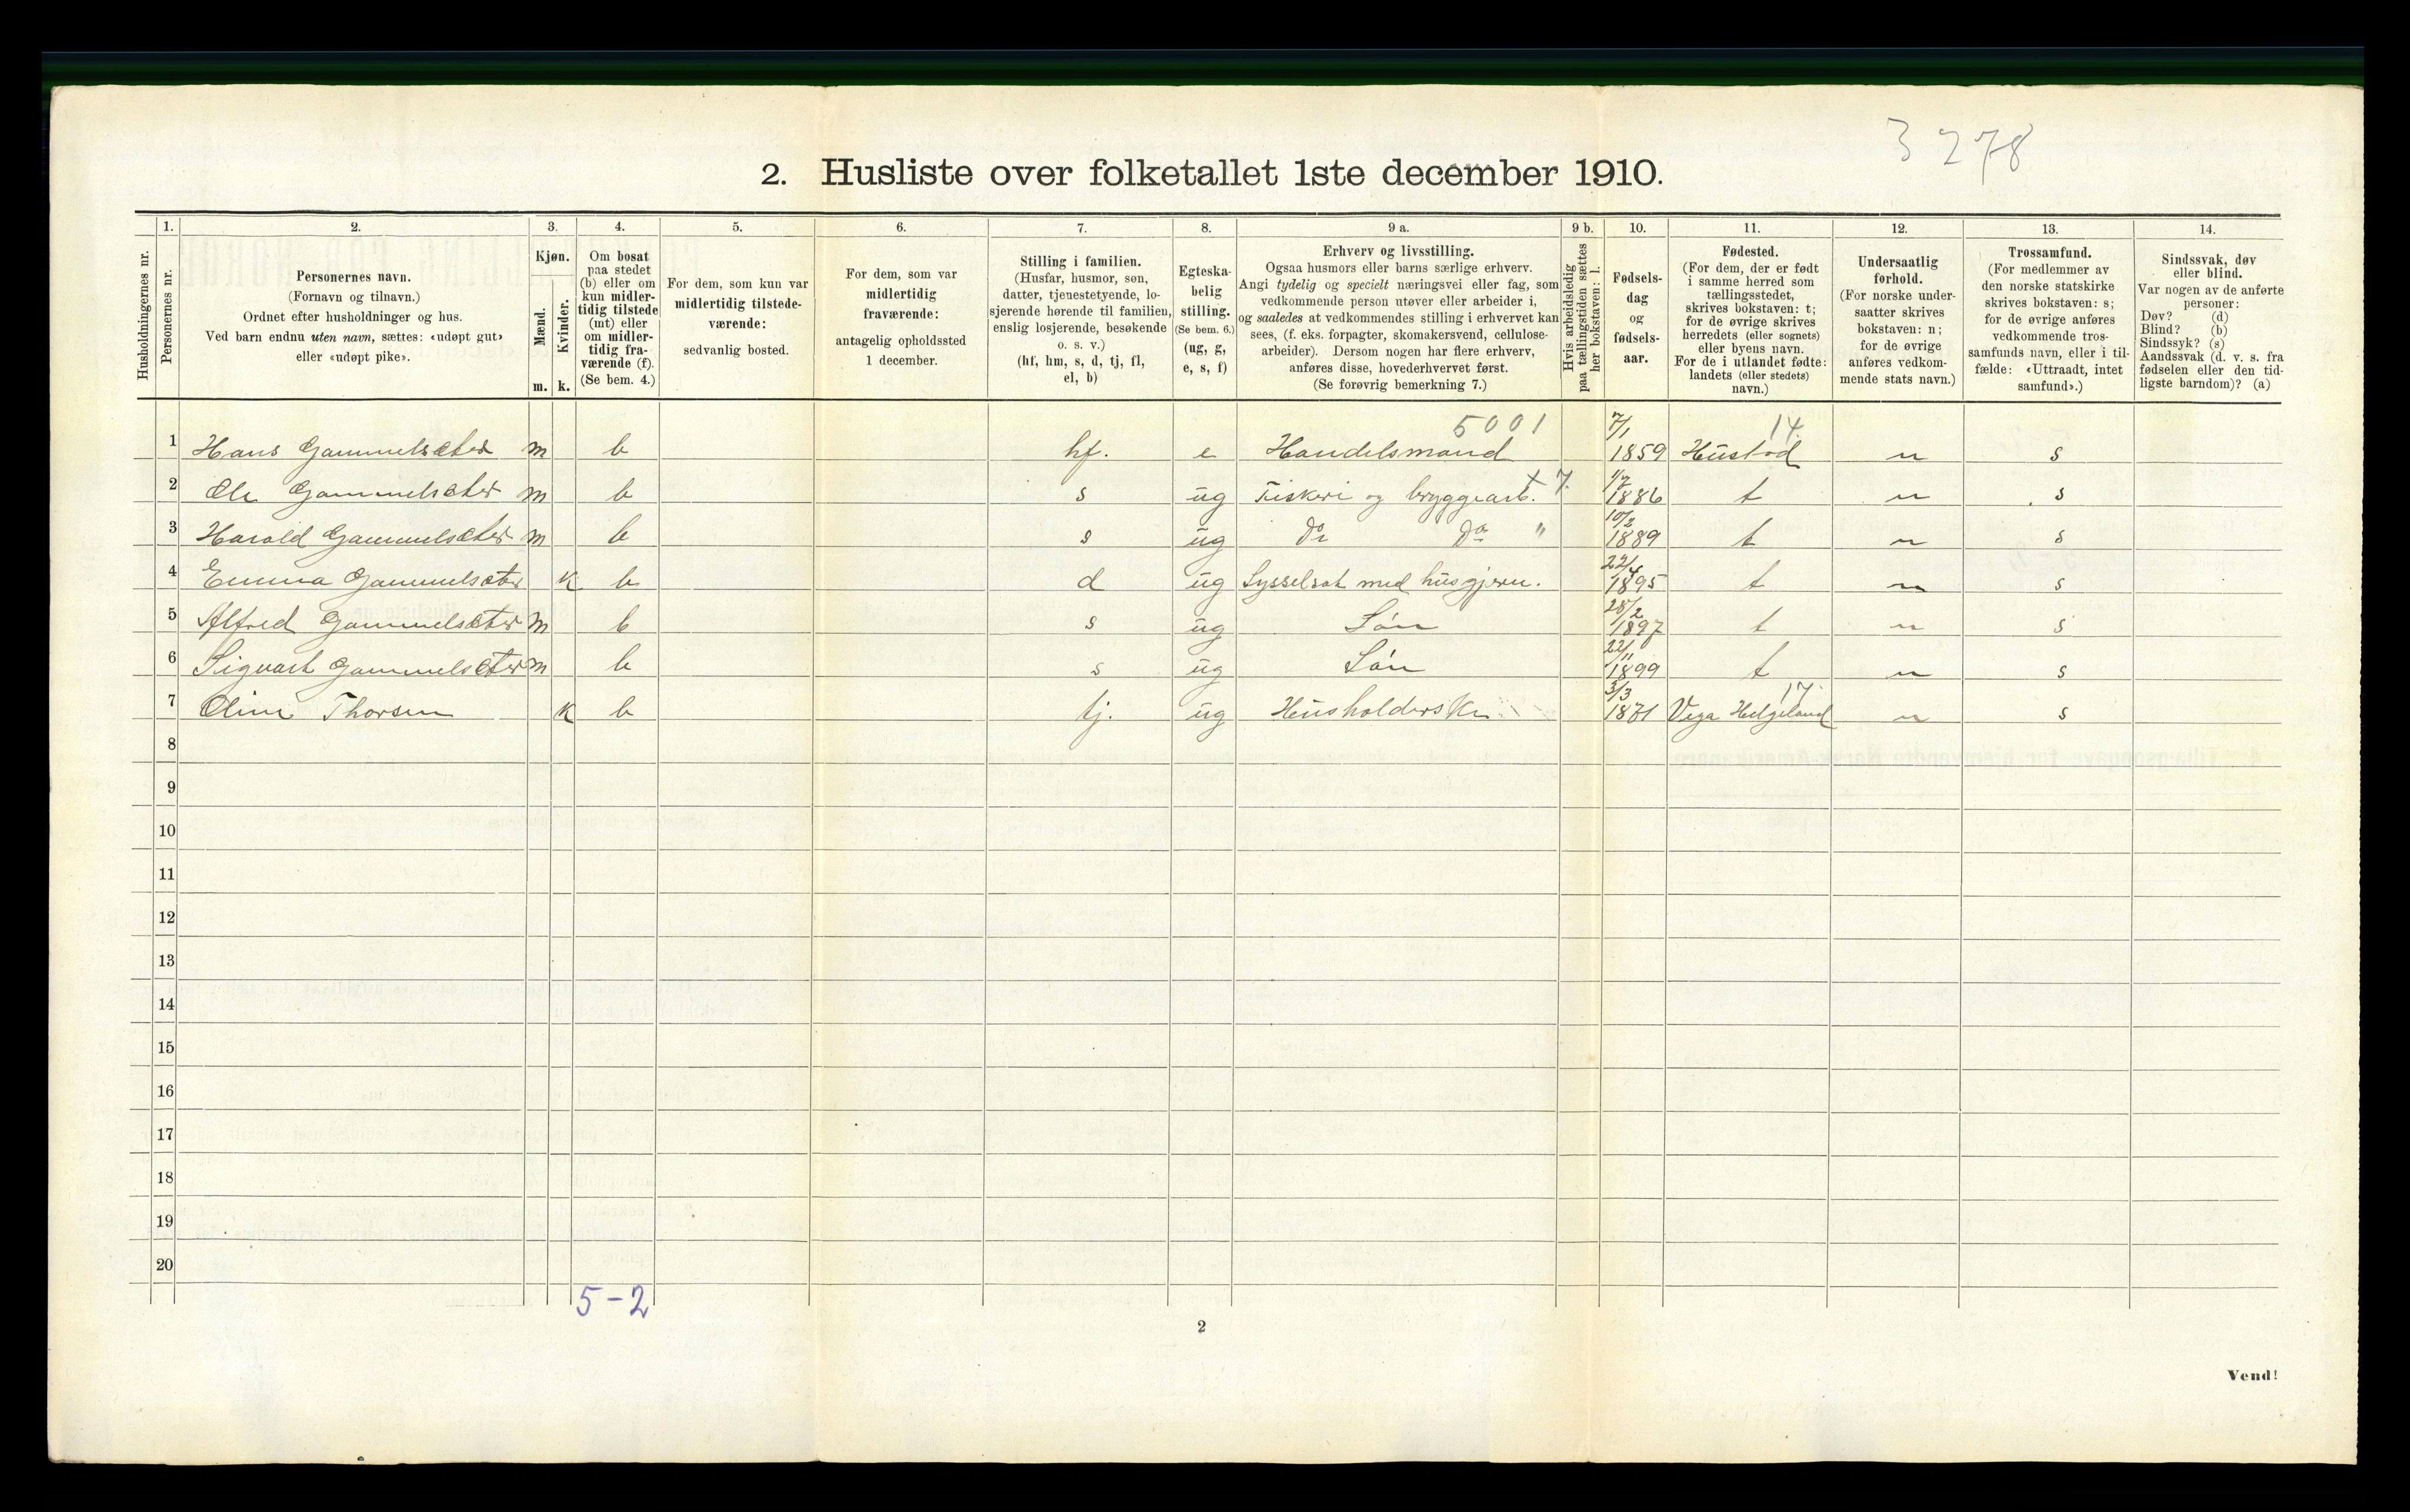 3 278
2. Husliste over folketallet 1ste december 1910.
Husholdningernes nr.
1.
Personernes nr.
2.
Personernes navn.
(Fornavn og tilnavn.)
Ordnet efter husholdninger og hus.
Ved barn endnu uten navn, sættes: «udøpt gut»
eller «udøpt pike».
3.
Kjøn.
Mænd.
Kvinder.
m. k.
4.
Om bosat
paa stedet
(b) eller om
kun midler-
tidig tilstede
(mt) eller
om midler-
tidig fra-
værende (f).
(Se bem. 4.)
5.
For dem, som kun var
midlertidig tilstede-
værende:
sedvanlig bosted.
6.
For dem, som var
midlertidig
fraværende:
antagelig opholdssted
1 december.
7.
Stilling i familien.
(Husfar, husmor, søn,
datter, tjenestetyende, lo-
sjerende hørende til familien,
enslig losjerende, besøkende
o. s. v.)
(hf, hm, s, d, tj, fl,
el, b)
8.
Egteska-
belig
stilling.
(Se bem. 6.)
(ug, g,
e, s, f)
9 a.
Erhverv og livsstilling.
Ogsaa husmors eller barns særlige erhverv.
Angi tydelig og specielt næringsvei eller fag, som
vedkommende person utøver eller arbeider i,
og saaledes at vedkommendes stilling i erhvervet kan
sees, (f. eks. forpagter, skomakersvend, cellulose-
arbeider). Dersom nogen har flere erhverv,
anføres disse, hovederhvervet først.
(Se forøvrig bemerkning 7.)
9 b.
Hvis arbeidsledig
paa tællingstiden sættes
her bokstaven: l.
10.
Fødsels-
dag
og
fødsels-
aar.
11.
Fødested.
(For dem, der er født
i samme herred som
tællingsstedet,
skrives bokstaven: t;
for de øvrige skrives
herredets (eller sognets)
eller byens navn.
For de i utlandet fødte:
landets (eller stedets)
navn.)
12.
Undersaatlig
forhold.
(For norske under-
saatter skrives
bokstaven: n;
for de øvrige
anføres vedkom-
mende stats navn.)
13.
Trossamfund.
(For medlemmer av
den norske statskirke
skrives bokstaven: s;
for de øvrige anføres
vedkommende tros-
samfunds navn, eller i til-
fælde: «Uttraadt, intet
samfund».)
14.
Sindssvak, døv
eller blind.
Var nogen av de anførte
personer:
Døv? (d)
Blind? (b)
Sindssyk? (s)
Aandssvak (d. v. s. fra
fødselen eller den tid-
ligste barndom)? (a)
5001 7/1 14.
1 Hans Gammelsæter m b hf. e Handelsmand 1859 Hustad n s
2 Ole Gammelsæter m b s ug Fiskeri og bryggearb. + 7. 1886 t n s
3 Harald Gammelsæter m b s ug Do Do " 10/2 1889 t n s
4 Emma Gammelsæter k b d ug Sysselsat med husgjern. 22/4 1895 t n s
5 Alfred Gammelsæter m b s ug Søn 28/2 1897 t n s
6 Sigvart Gammelsæter m b s ug Søn 22/11 1899 t n s
7 Oline Thorsen k b tj. ug Husholderske 3/3 1871 Vega Helgeland 17. n s
8
9
10
11
12
13
14
15
16
17
18
19
20
5-2
2
Vend!